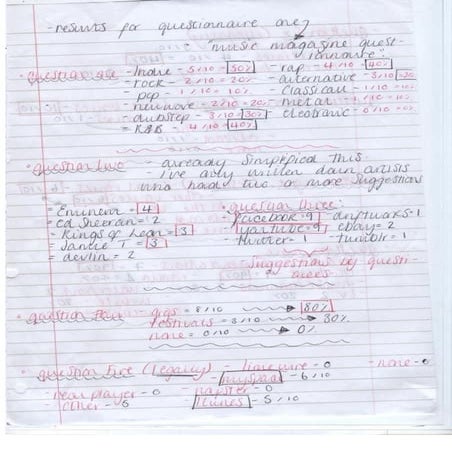 - results for questionnaire one,
"music magazine quest-
ionnaire":
• question one - Indie - 5/10 = 50% - rap - 4/10 = 40%
- rock - 2/10 = 20% - alternative - 3/10 = 30%
- pop - 1/10 = 10% - classical - 1/10 = 10%
- new wave - 2/10 = 20% - metal - 1/10 = 10%
- dubstep - 3/10 = 30% - electronic - 0/10 = 0%
= R&B - 4/10 = 40%
• question two - already simplified this
- I've only written down artists
who had two or more suggestions
= Eminem = 4
= ed sheeran = 2
- Kings of Leon = 3
= = 3
= devlin = 2
• question three:
- facebook - 9 - 1
- youtube = 9 - ebay = 2
- twitter - 1 - tumblr = 1
suggestions by questi-
• question four gigs = 8/10 80%
festivals = 3/10 30%
none = 0/10 0%
• question five (legally) - limewire - 0 - none - 0
- myspace - 6/10
- real player - 0 - napster - 0
- other - 6 - itunes - 5/10